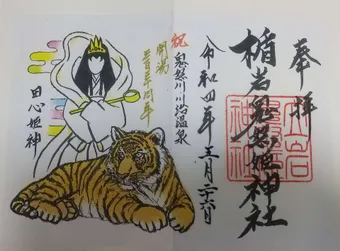 奉拝
楯岩鬼怒姫神社
令和四年三月二十六日
祝 鬼怒川川治温泉
開湯
三百三十周年
田心姫神